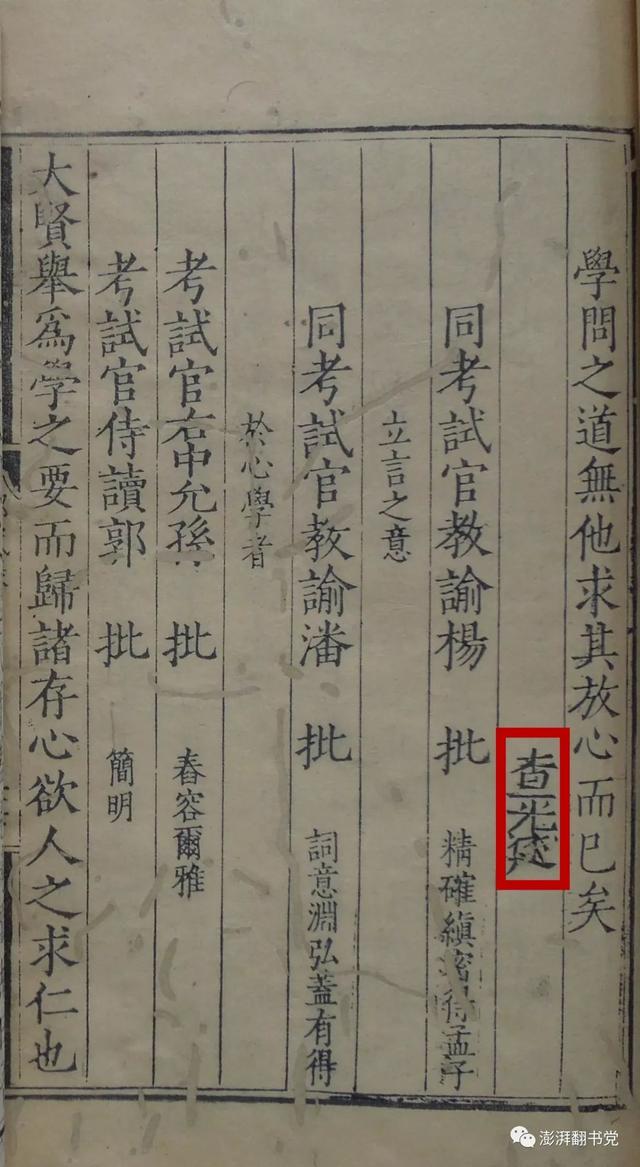 學問之道無他求其放心而已矣
查光
同考試官教諭楊 批 精確縝密得孟子
立言之意
同考試官教諭潘 批 詞意淵弘蓋有得
於心學者
考試官右中允孫 批 舂容爾雅
考試官侍讀郭 批 簡明
大賢舉爲學之要而歸諸存心欲人之求仁也
澎湃翻书党